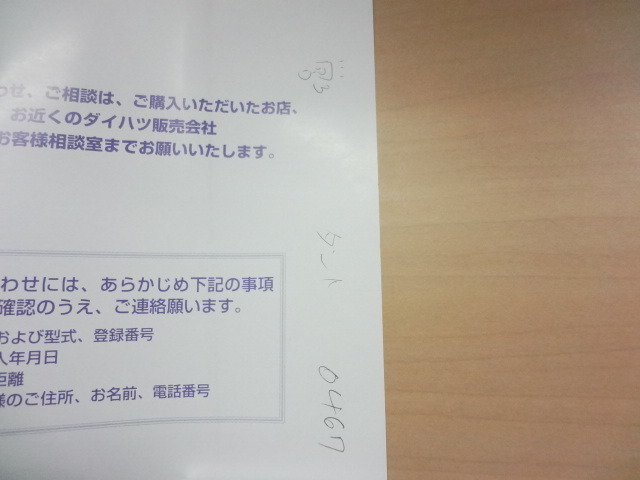 わせ、ご相談は、ご購入いただいたお店、
お近くのダイハツ販売会社
お客様相談室までお願いいたします。
わせには、あらかじめ下記の事項
確認のうえ、ご連絡願います。
および型式、登録番号
入年月日
距離
様のご住所、お名前、電話番号
タント
0467